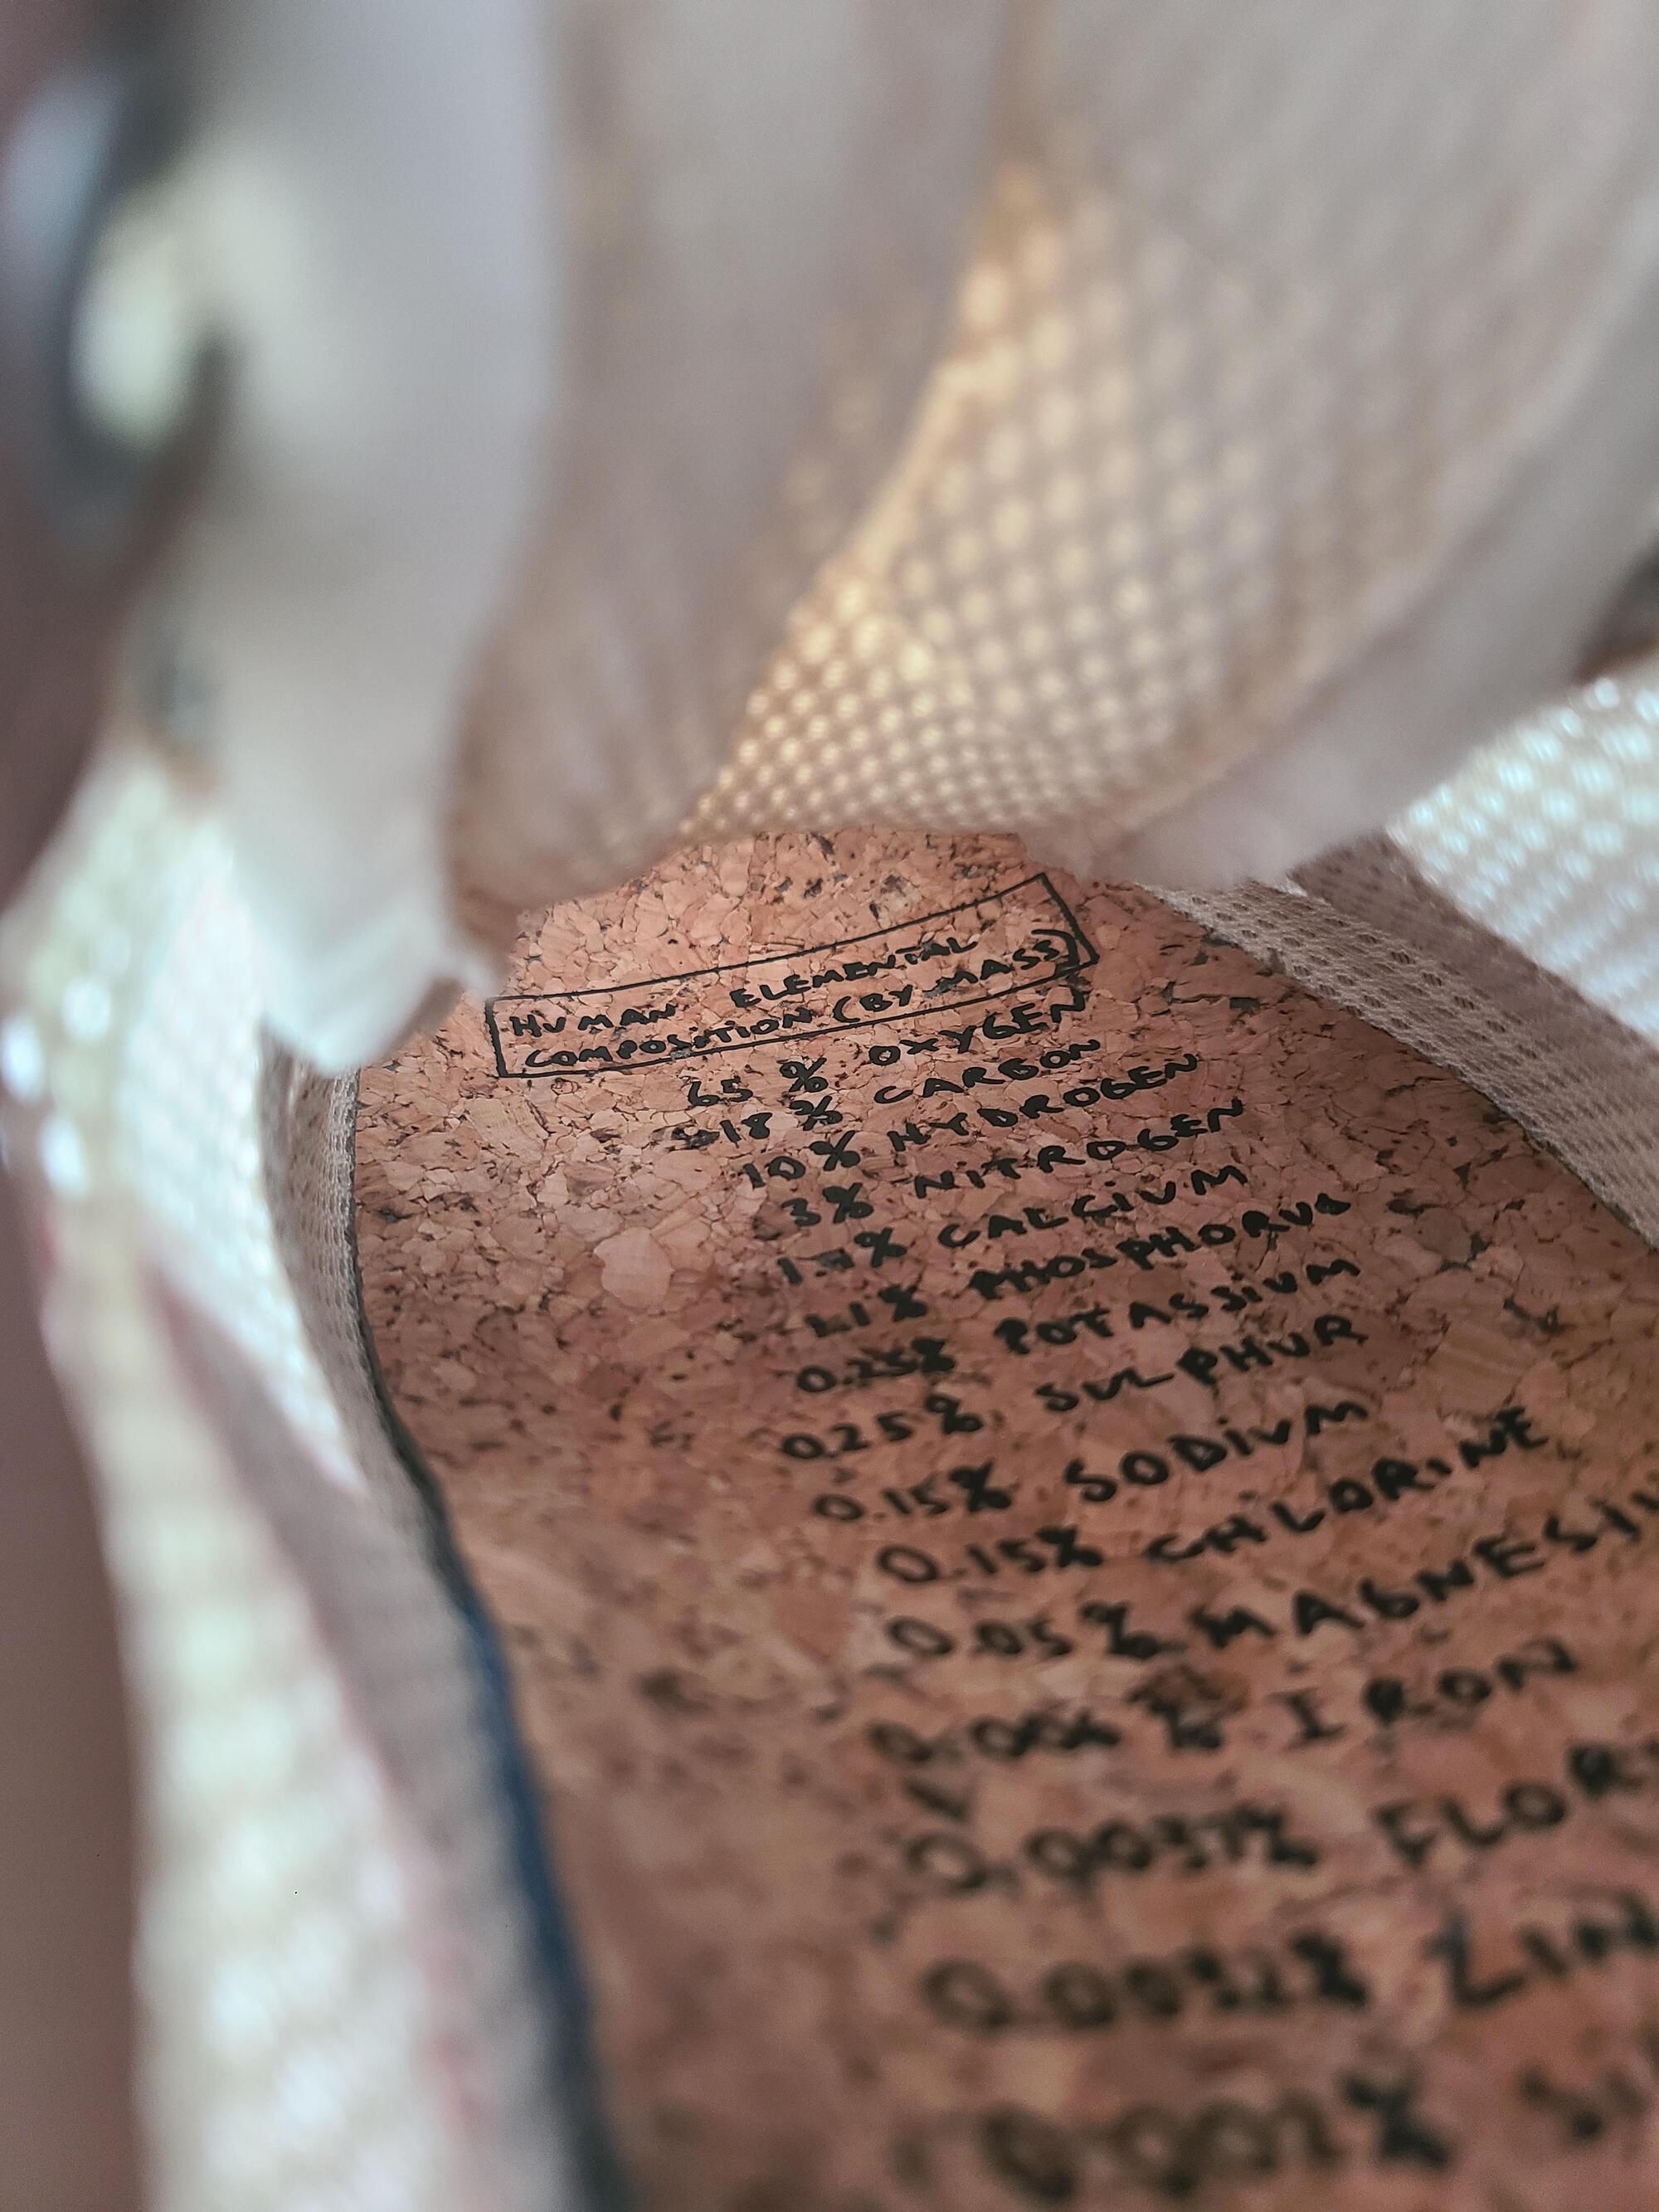 HUMAN ELEMENTAL
COMPOSITION (BY MASS)
65 % OXYGEN
18 % CARBON
10 % HYDROGEN
3% NITROGEN
CALCIUM
1.1% PHOSPHORUS
0.25% POTASSIUM
0.25% SULPHUR
0.15% SODIUM
0.15% CHLORINE
0.05% MAGNESIU
0.006% IRON
0.0037% FLOR
0.0032% ZIN
0.002%